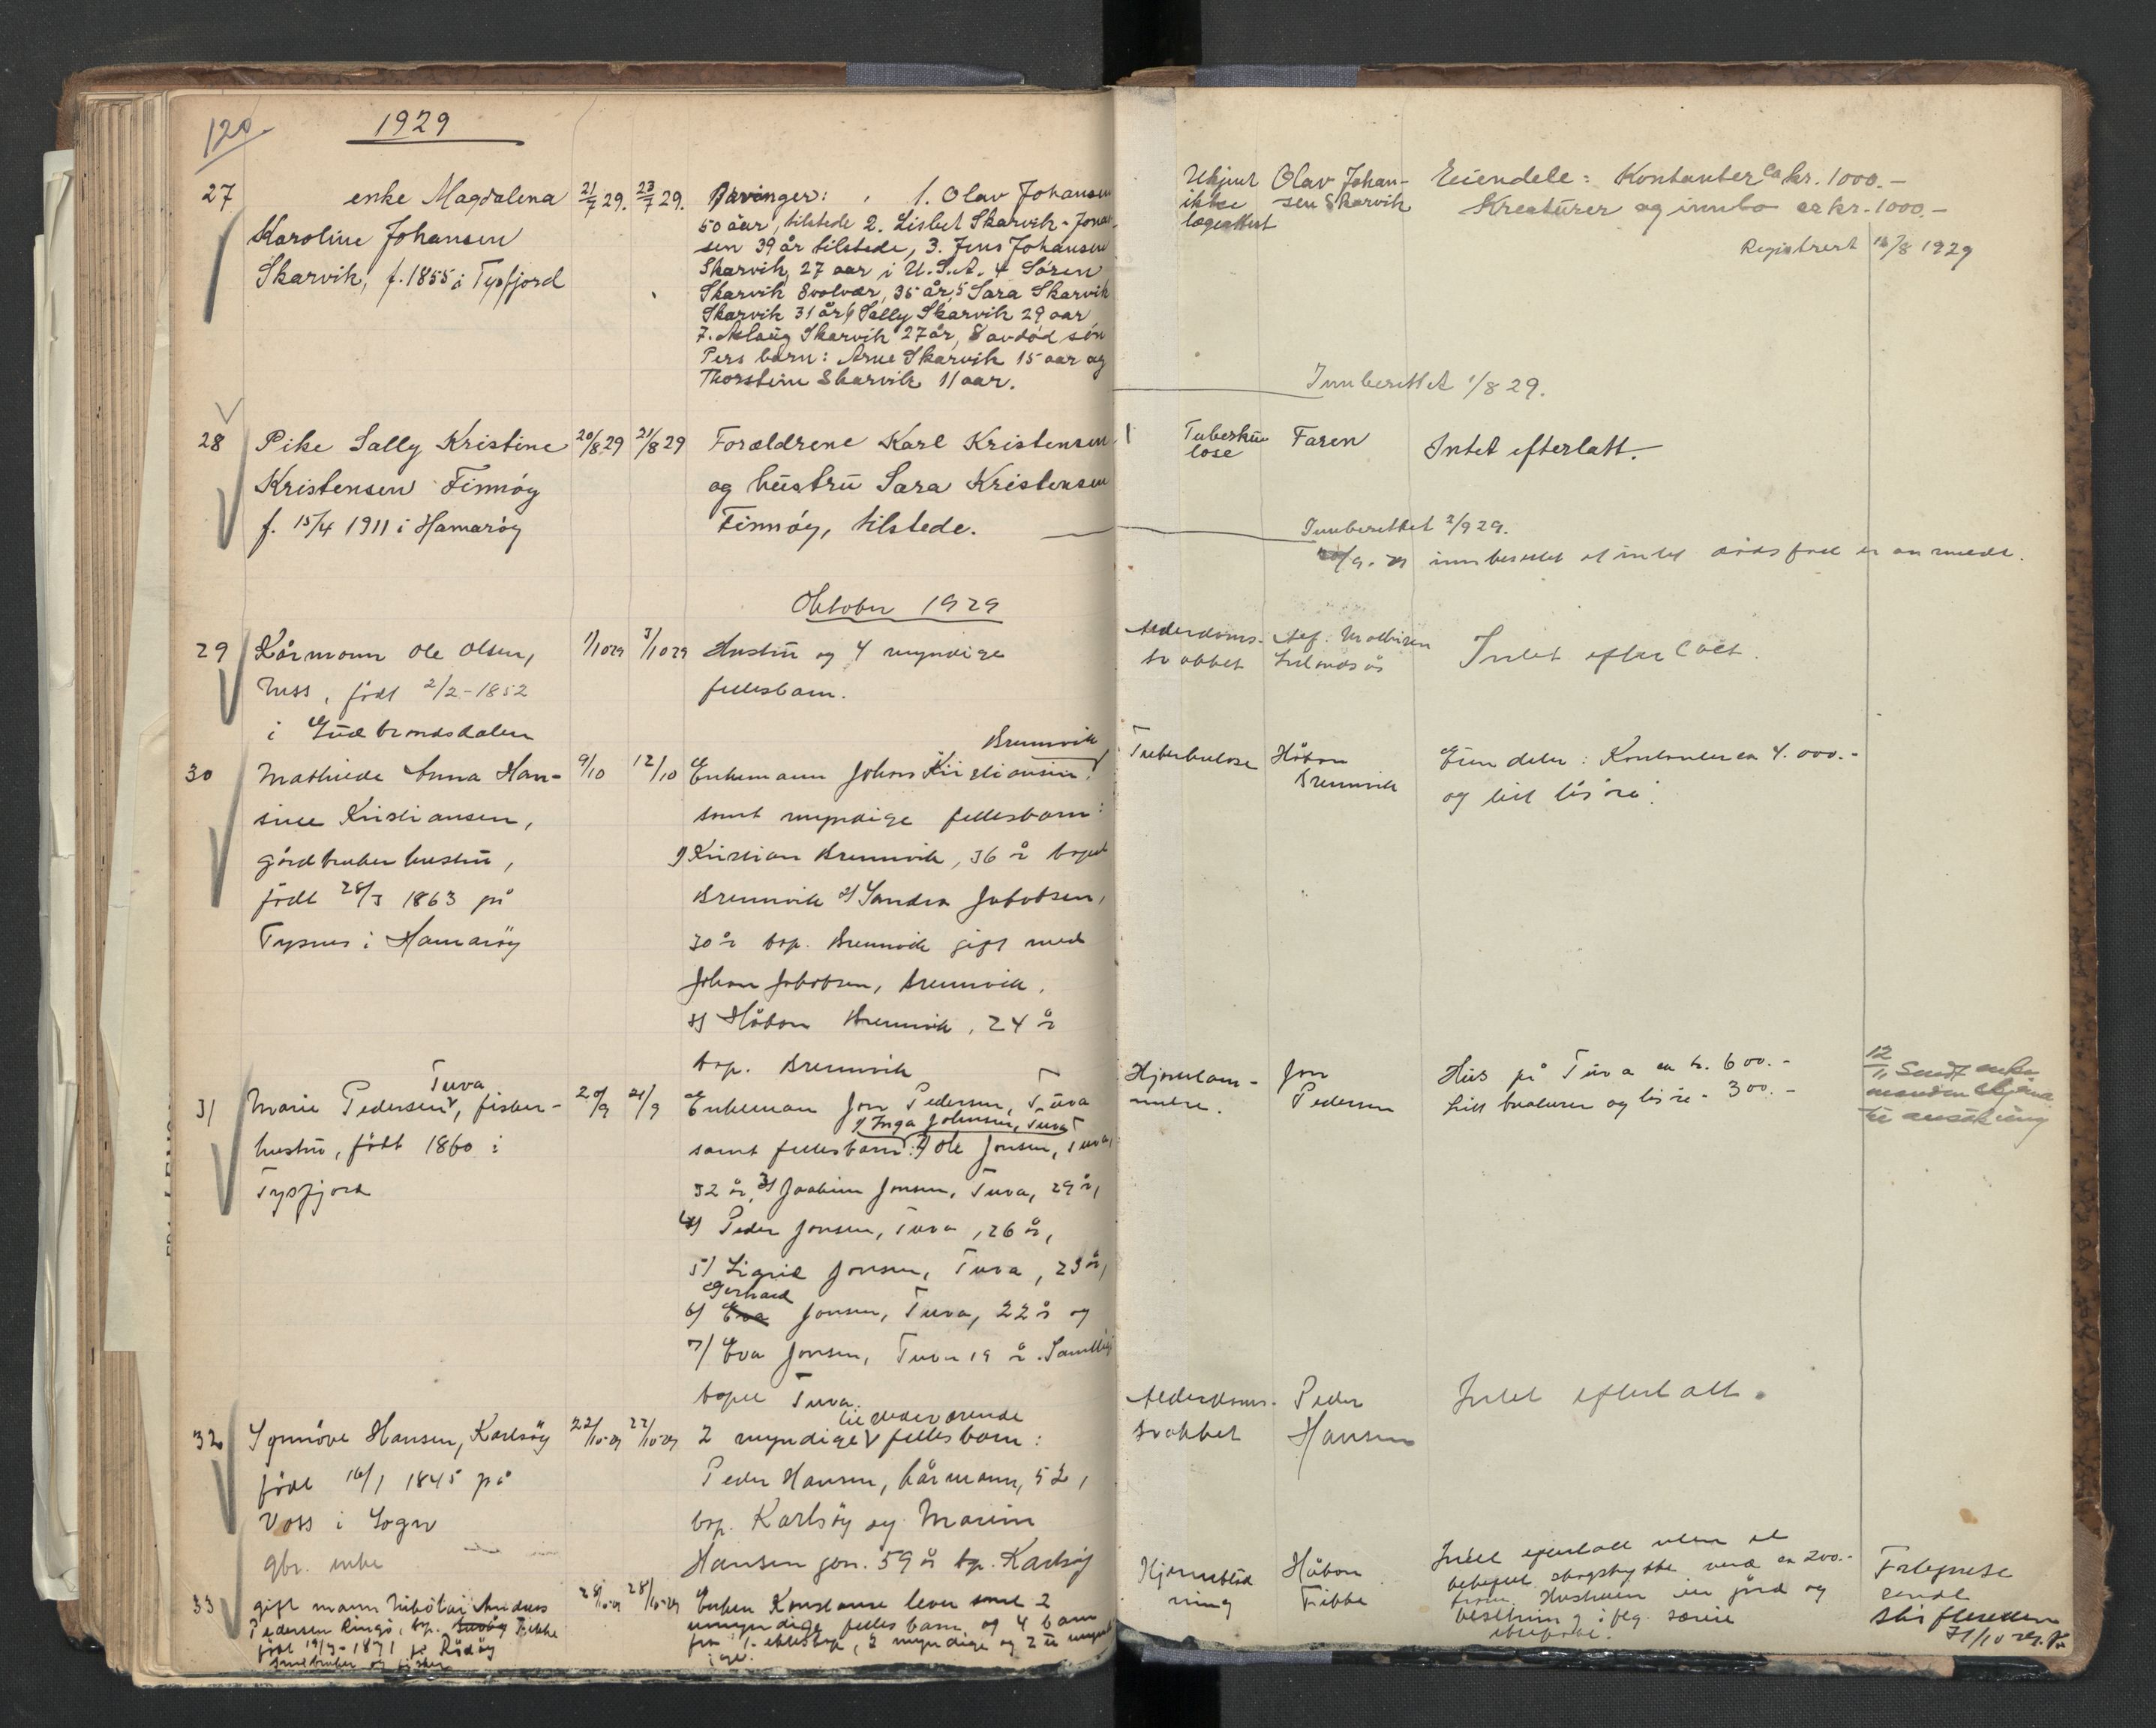 120.
1929
27
enke Magdalena
Karoline Johansen
Skarvik, f. 1855 i Tysfjord
21/7 29.
23/7 29.
Arvinger: 1. Olav Johansen
50 aar, tilstede 2. Lisbet Skarvik-Jonas-
sen 39 år tilstede, 3. Jens Johansen
Skarvik, 27 aar i U.S.A. 4 Sören
Skarvik Svolvær, 35 år, 5 Sara Skarvik
Skarvik 31 år, 6 Sally Skarvik 29 aar
7. Aslaug Skarvik 27 år, 8 avdöd sön
Pers barn: Arne Skarvik 15 aar og
Thorstein Skarvik 11 aar.
Ukjent
ikke
lægeattest
Olav Johan-
sen Skarvik
Eiendele: Kontanter ca kr. 1000.-
Kreaturer og innbo ca kr. 1000.-
Registrert 16/8 1929
Innberettet 1/8 29.
28
Pike Sally Kristine
Kristensen Finnöy
f. 15/4 1911 i Hamaröy
20/8 29
21/8 29
Forældrene Karl Kristensen
og hustru Sara Kristensen
Finnöy, tilstede.
1
Tuberku
lose
Faren
Intet efterlatt.
Innberettet 2/9 29.
innberettet at intet dödsfall er anmeldt.
Oktober 1929
29
Kårmann Ole Olsen,
Ness, födt 2/2-1852
i Gudbrandsdalen
1/10 29
3/10 29
Hustru og 4 myndige
fellesbarn.
Alderdoms-
svakhet
Intet efterlatt.
30
Mathilde Anna Han-
sine Kristiansen,
gårdbruker hustru,
födt 28/3 1863 på
Tysnes i Hamaröy
9/10
12/10
Brennvik
Enkemann Johan Kristiansen
samt myndige fellesbarn:
1) Kristian Brennvik, 36 år bopel
Brennvik 2) Sandra Jakobsen,
30 år bop. Brennvik gift med
Johan Jakobsen, Brennvik.
3) Håkon Brennvik, 24 år
bop. Brennvik
Tuberkulose
Håkon
Brennvik
Eiendeler: Kontanter ca 4.000.-
og litt lösöre.
31
Tuva
Marie Pedersen, fisker-
hustru, födt 1860 i
Tysfjord
20/9
21/9
Enkeman Jon Pedersen, Tuva
1) Inga Johnsen, Tuva
samt fellesbarn: 2) Ole Jonsen, Tuva,
32 år, 3) Joakim Jonsen, Tuva, 29 år,
4) Peder Jonsen, Tuva, 26 år,
5) Sigrid Jonsen, Tuva, 23 år,
Gerhard
6) Eva Jonsen, Tuva, 22 år og
7) Eva Jonsen, Tuva 19 år. Samtlige
bopel Tuva.
Hjertelam-
melse.
Jon
Pedersen
Hus på Tuva ca kr. 600.-
Litt kreaturer og lösöre - 300.-
12/11 Sendt enke
manden skjema
til ansökning
32
Synnöve Hansen, Karlsöy
födt 16/1 1845 på
Voss i Sogn
gbr. enke
22/10-29
22/10-29
tilstedeværende
2 myndige fellesbarn:
Peder Hansen, kårmann, 52,
bop. Karlsöy og Marein
Hansen gen. 59 år bp. Karlsöy
Alderdoms-
svakhet
Peder
Hansen
Intet efterlatt.
33
gift mann Nikolai Andreas
Pedersen Ringö, bp. Fikke
födt 19/3-1871 på Rödöy
småbruker og fisker
28/10-29
28/10-29
Enken Konstanse lever samt 2
umyndige felles barn, og 4 barn
fra 1. ekteskap, 2 myndige og 2 u mynd
ige.
Hjerneblöd
ning
Håkon
Fikke
Intet efterlatt uten et
ca 200.-
Hustruen er jord og
besetning i særeie
Fortegnelse
sendt
skifteretten
31/10 29.